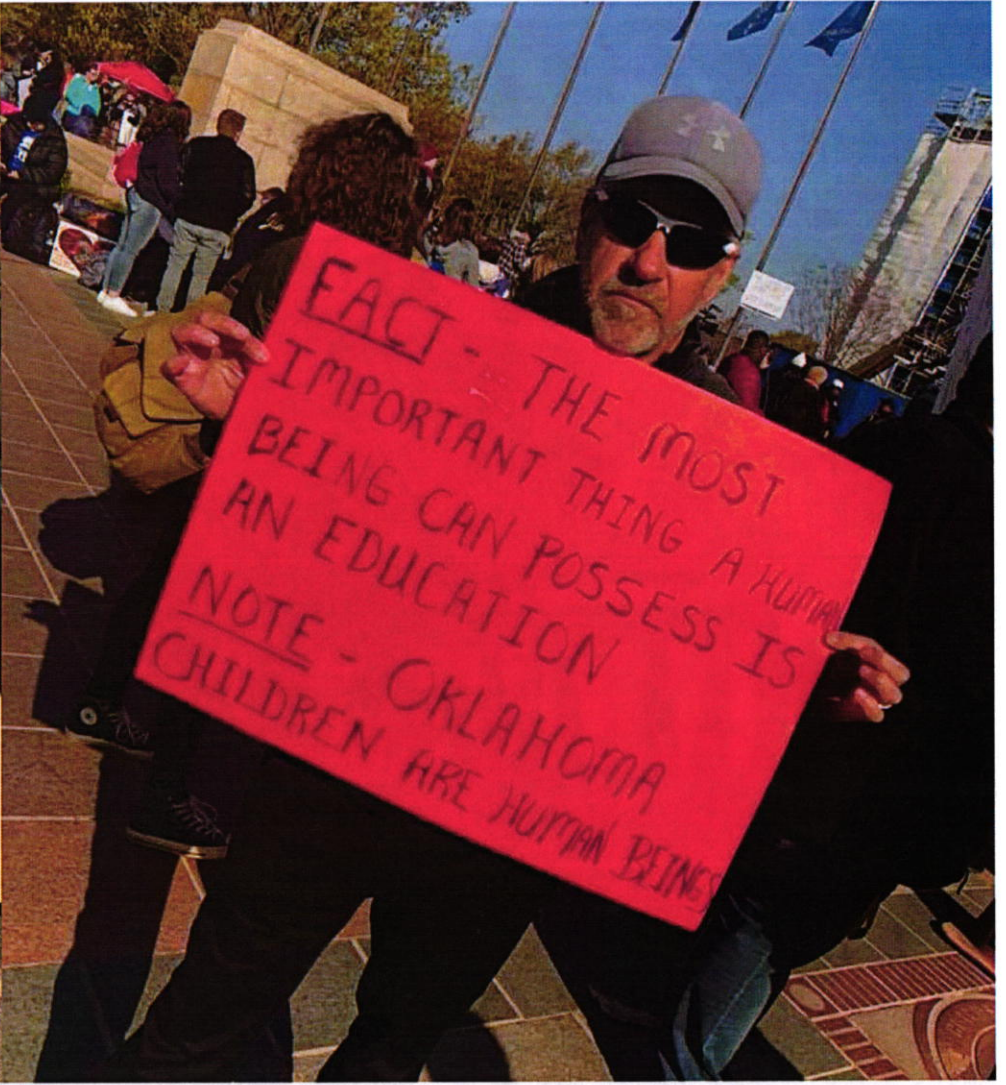 FACT - THE MOST
IMPORTANT THING A HUMAN
BEING CAN POSSESS IS
AN EDUCATION
NOTE - OKLAHOMA
CHILDREN ARE HUMAN BEINGS